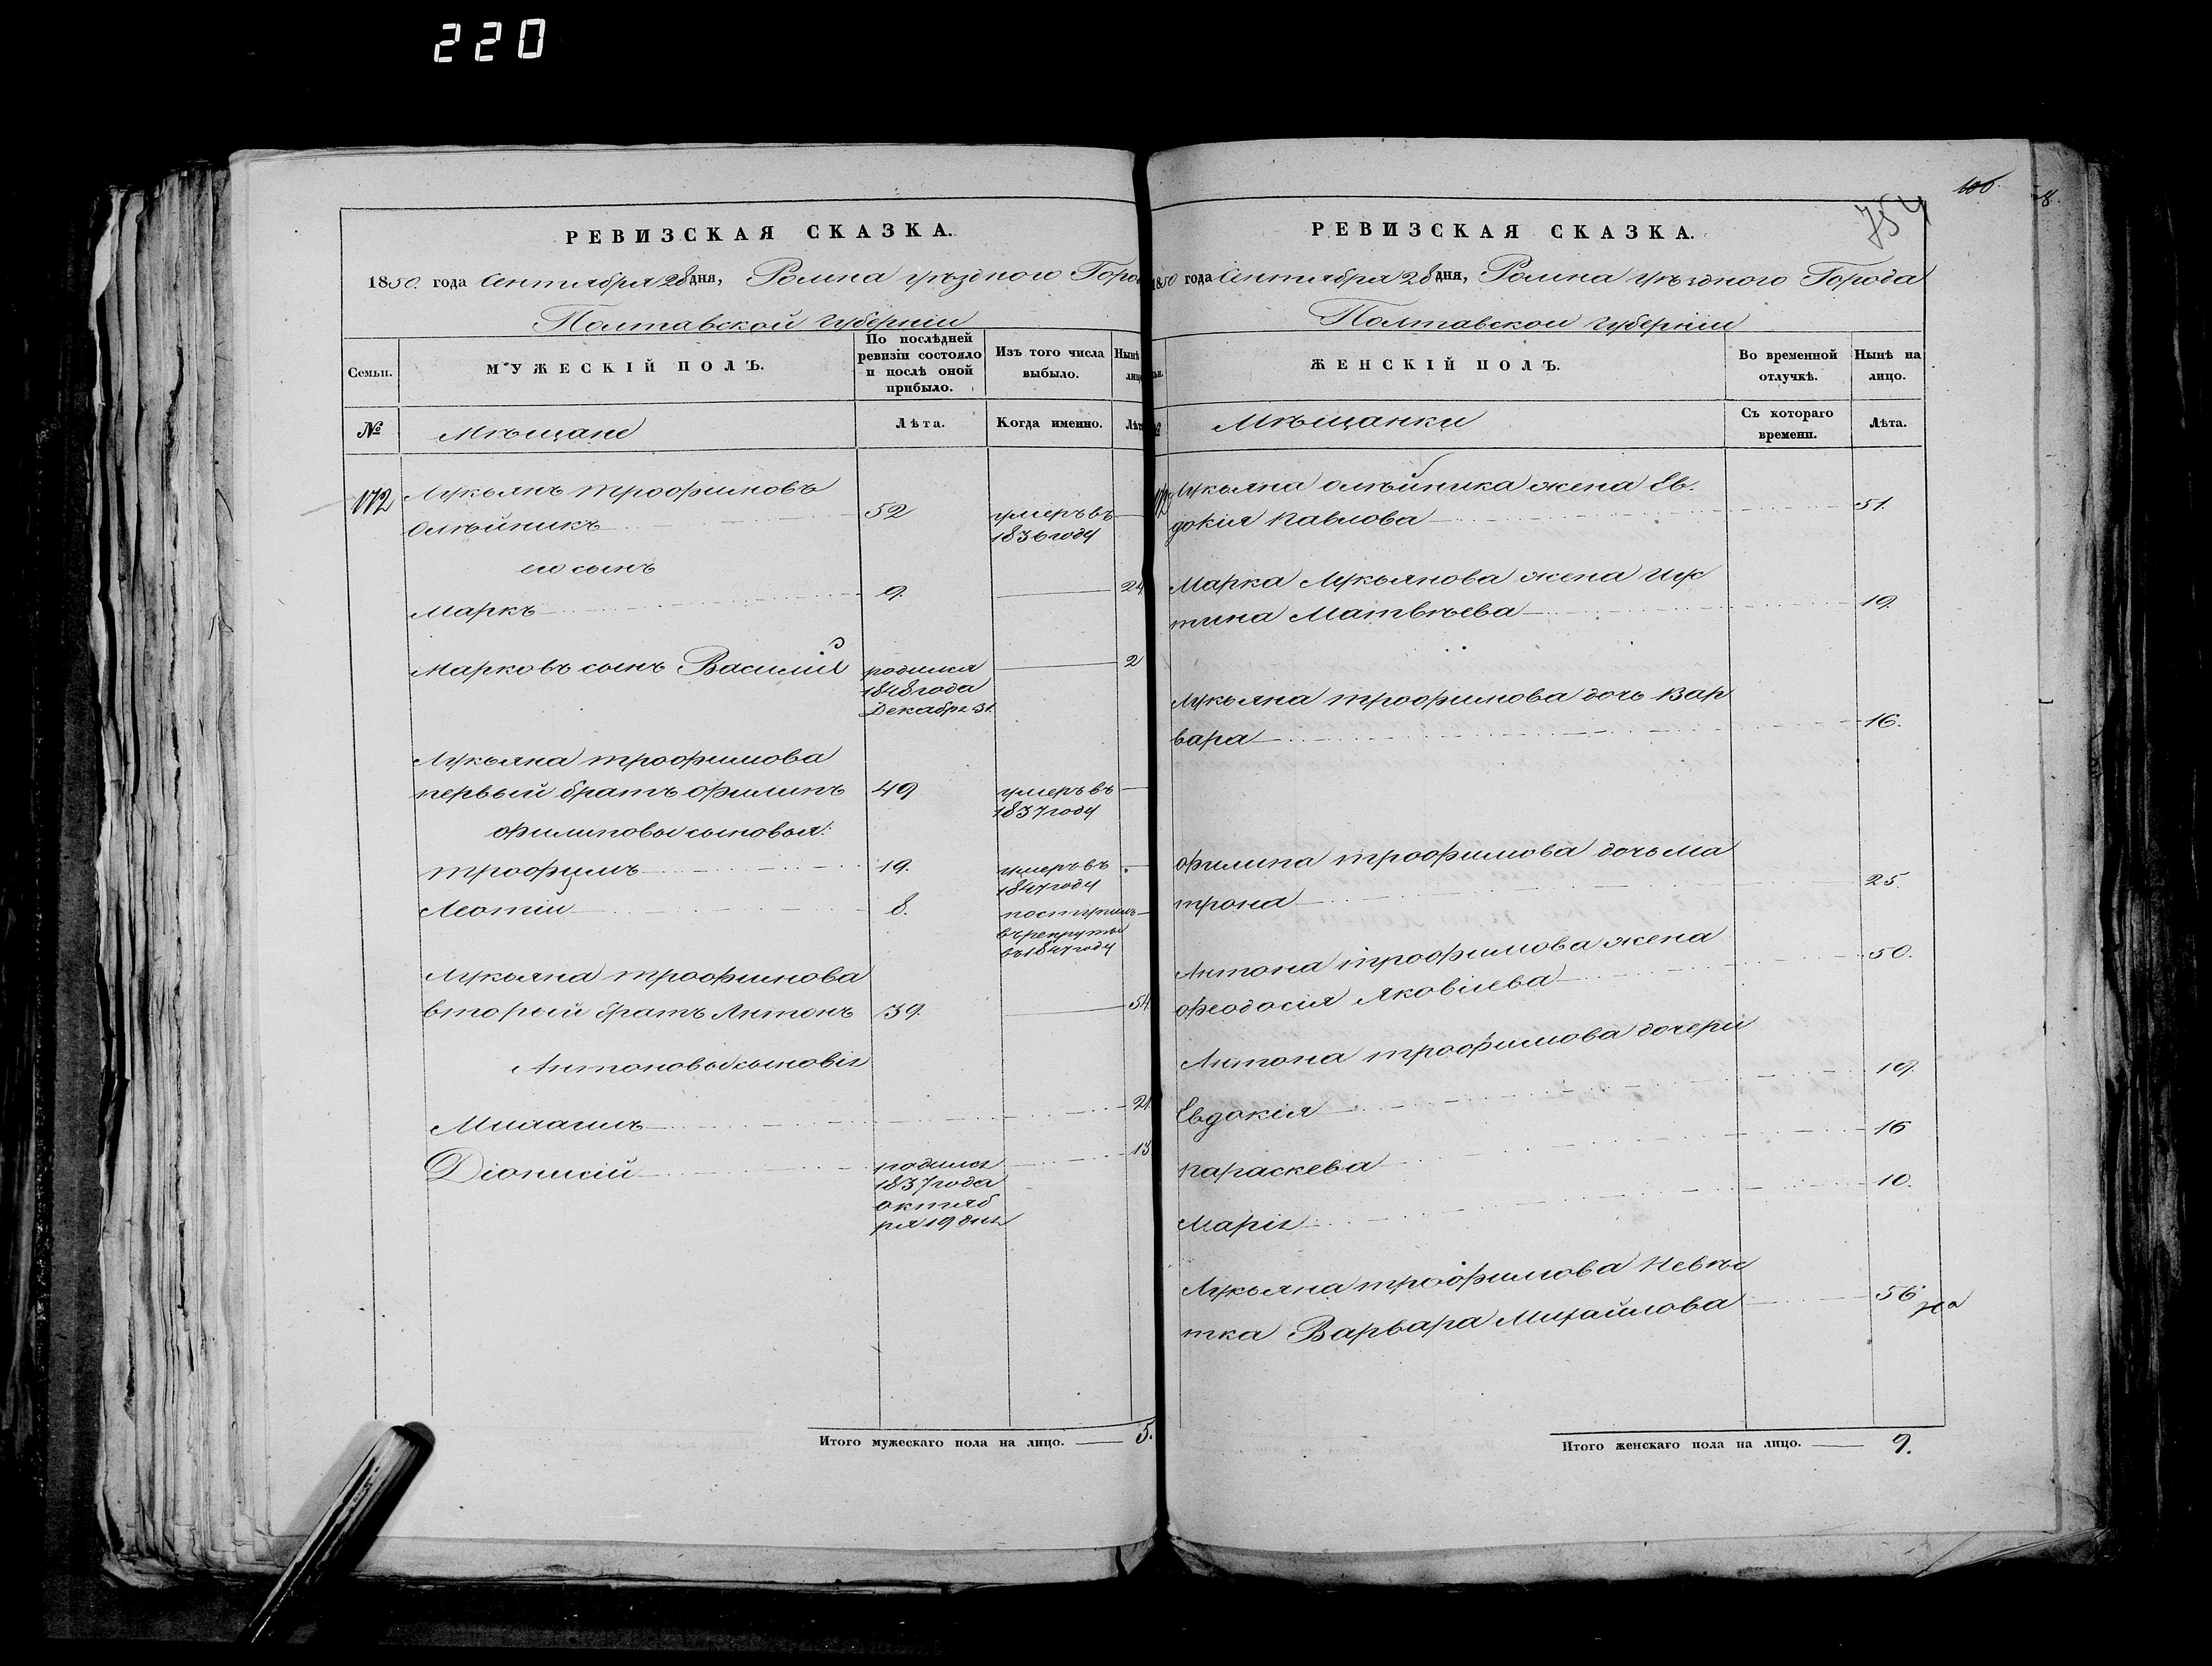 220
РЕВИЗСКАЯ СКАЗКА.
1850. года Сентября 28 дня, Ромна уѣзднаго Горо
Полтавской Губерніи
Семьи.
МУЖЕСКІЙ ПОЛЪ.
По послѣдней ревизіи состояло и послѣ оной прибыло.
Изъ того числа выбыло.
Нынѣ
лиц
№
Мѣщане
Лѣта.
Когда именно.
Лѣт
172
Лукьянъ Трофимовъ
Олѣйникъ
52
умеръ въ
1836 году
его сынъ
Маркъ
9.
24
Марковъ сынъ Василій
родился
1848 года
Декабря 31.
2
Лукьяна Трофимова
первый братъ Филипъ
49
умеръ въ
1837 году
Филиповы сыновья:
Трофимъ
19.
умеръ въ
1847 году
Леотій
8.
поступилъ
въ рекруты
въ 1847 году
Лукьяна Трофимова
вторый братъ Антонъ
39.
54.
Антоновы сыновья
21.
Діонисій
родился
1837 года
октяб
ря 19 дня
13
Итого мужескаго пола на лицо.
5.
106.
8.
754
РЕВИЗСКАЯ СКАЗКА.
1850 года Сентября 28 дня, Ромна уѣзднаго Города
Полтавской Губерніи
ЖЕНСКІЙ ПОЛЪ.
Во временной отлучкѣ.
Нынѣ на лицо.
Мѣщанки
Съ котораго времени.
Лѣта.
172
Лукьяна Олѣйника жена Ев.
докія Павлова
51.
Марка Лукьянова жена Иус
тина Матвѣева
19.
Лукьяна Трофимова дочь Вар
вара
16.
Филипа Трофимова дочь Ма
трона
25.
Антона Трофимова жена
Феодосія Яковлева
50.
Антона Трофимова дочери
Евдокія
19.
Параскева
16
Марія
10.
Лукьяна Трофимова Невѣс
тка Варвара Михайлова
56
Итого женскаго пола на лицо.
9.